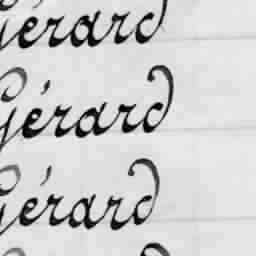 Gérard
Gérard
Gérard